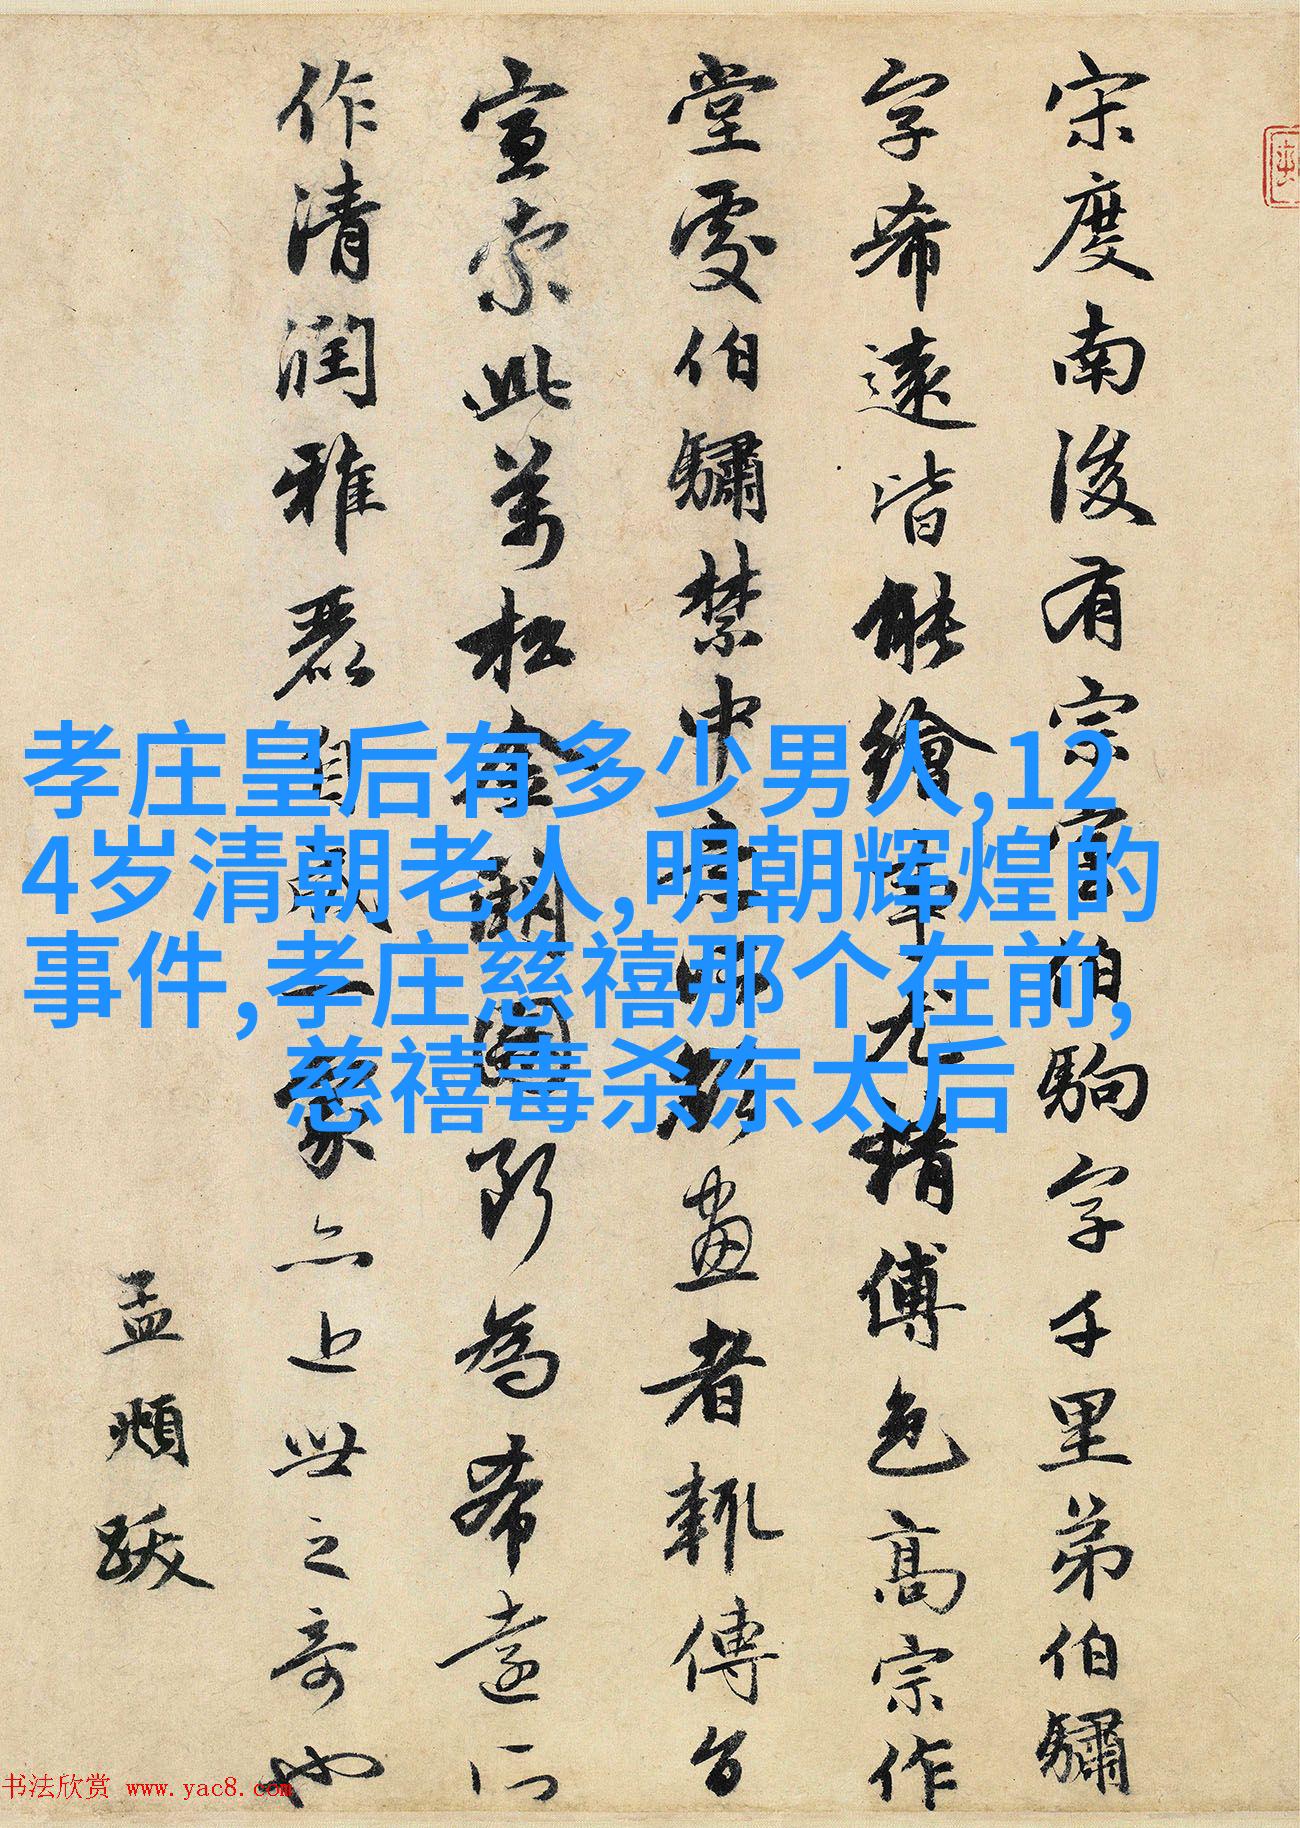 宋度南後有宗室伯駒字千里弟伯驌
字希遠皆能繪事尤精傅色高宗作
堂處伯驌禁中意所欲畫者輒傳旨
宣索此萬松金闕圖斷為希遠所
作清潤雅麗自成一家亦近世之奇也
孟頫跋
孝庄皇后有多少男人,12
4岁清朝老人,明朝辉煌的
事件,孝庄慈禧那个在前,
慈禧毒杀东太后
书法欣赏 www.yac8.com